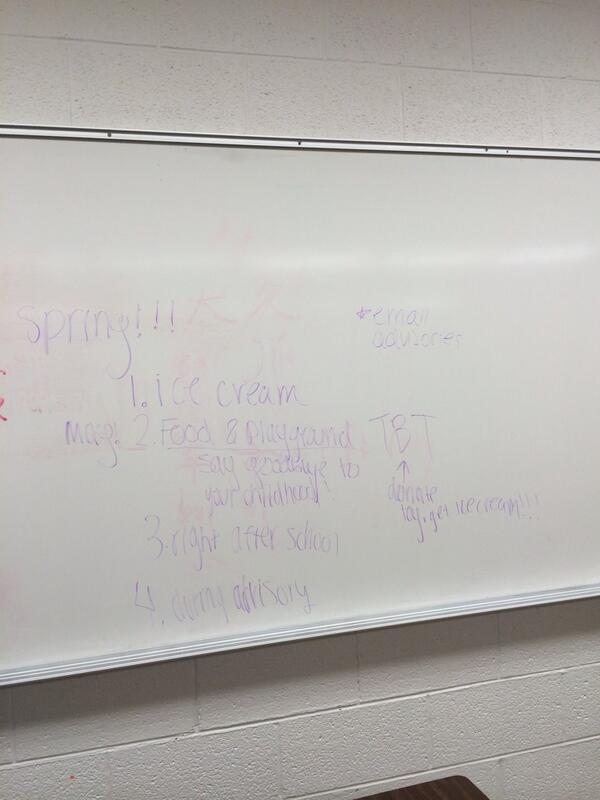 spring!!!
*email
advisories
1. ice cream
May! 2. Food & Playground TBT
say goodbye to
your childhood!
↑
donate
toy, get icecream!!!
3. right after school
4. during advisory